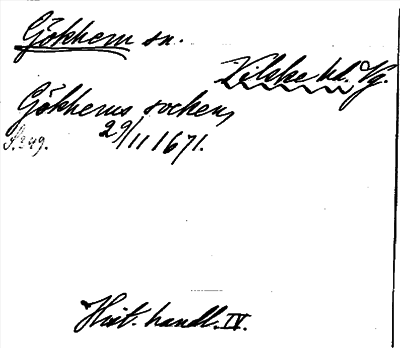 Gökhem sn.
Vilske hd. Vg.
Gökhems socken,
S. 249. 29/11 1671.
Hist. handl. IV.